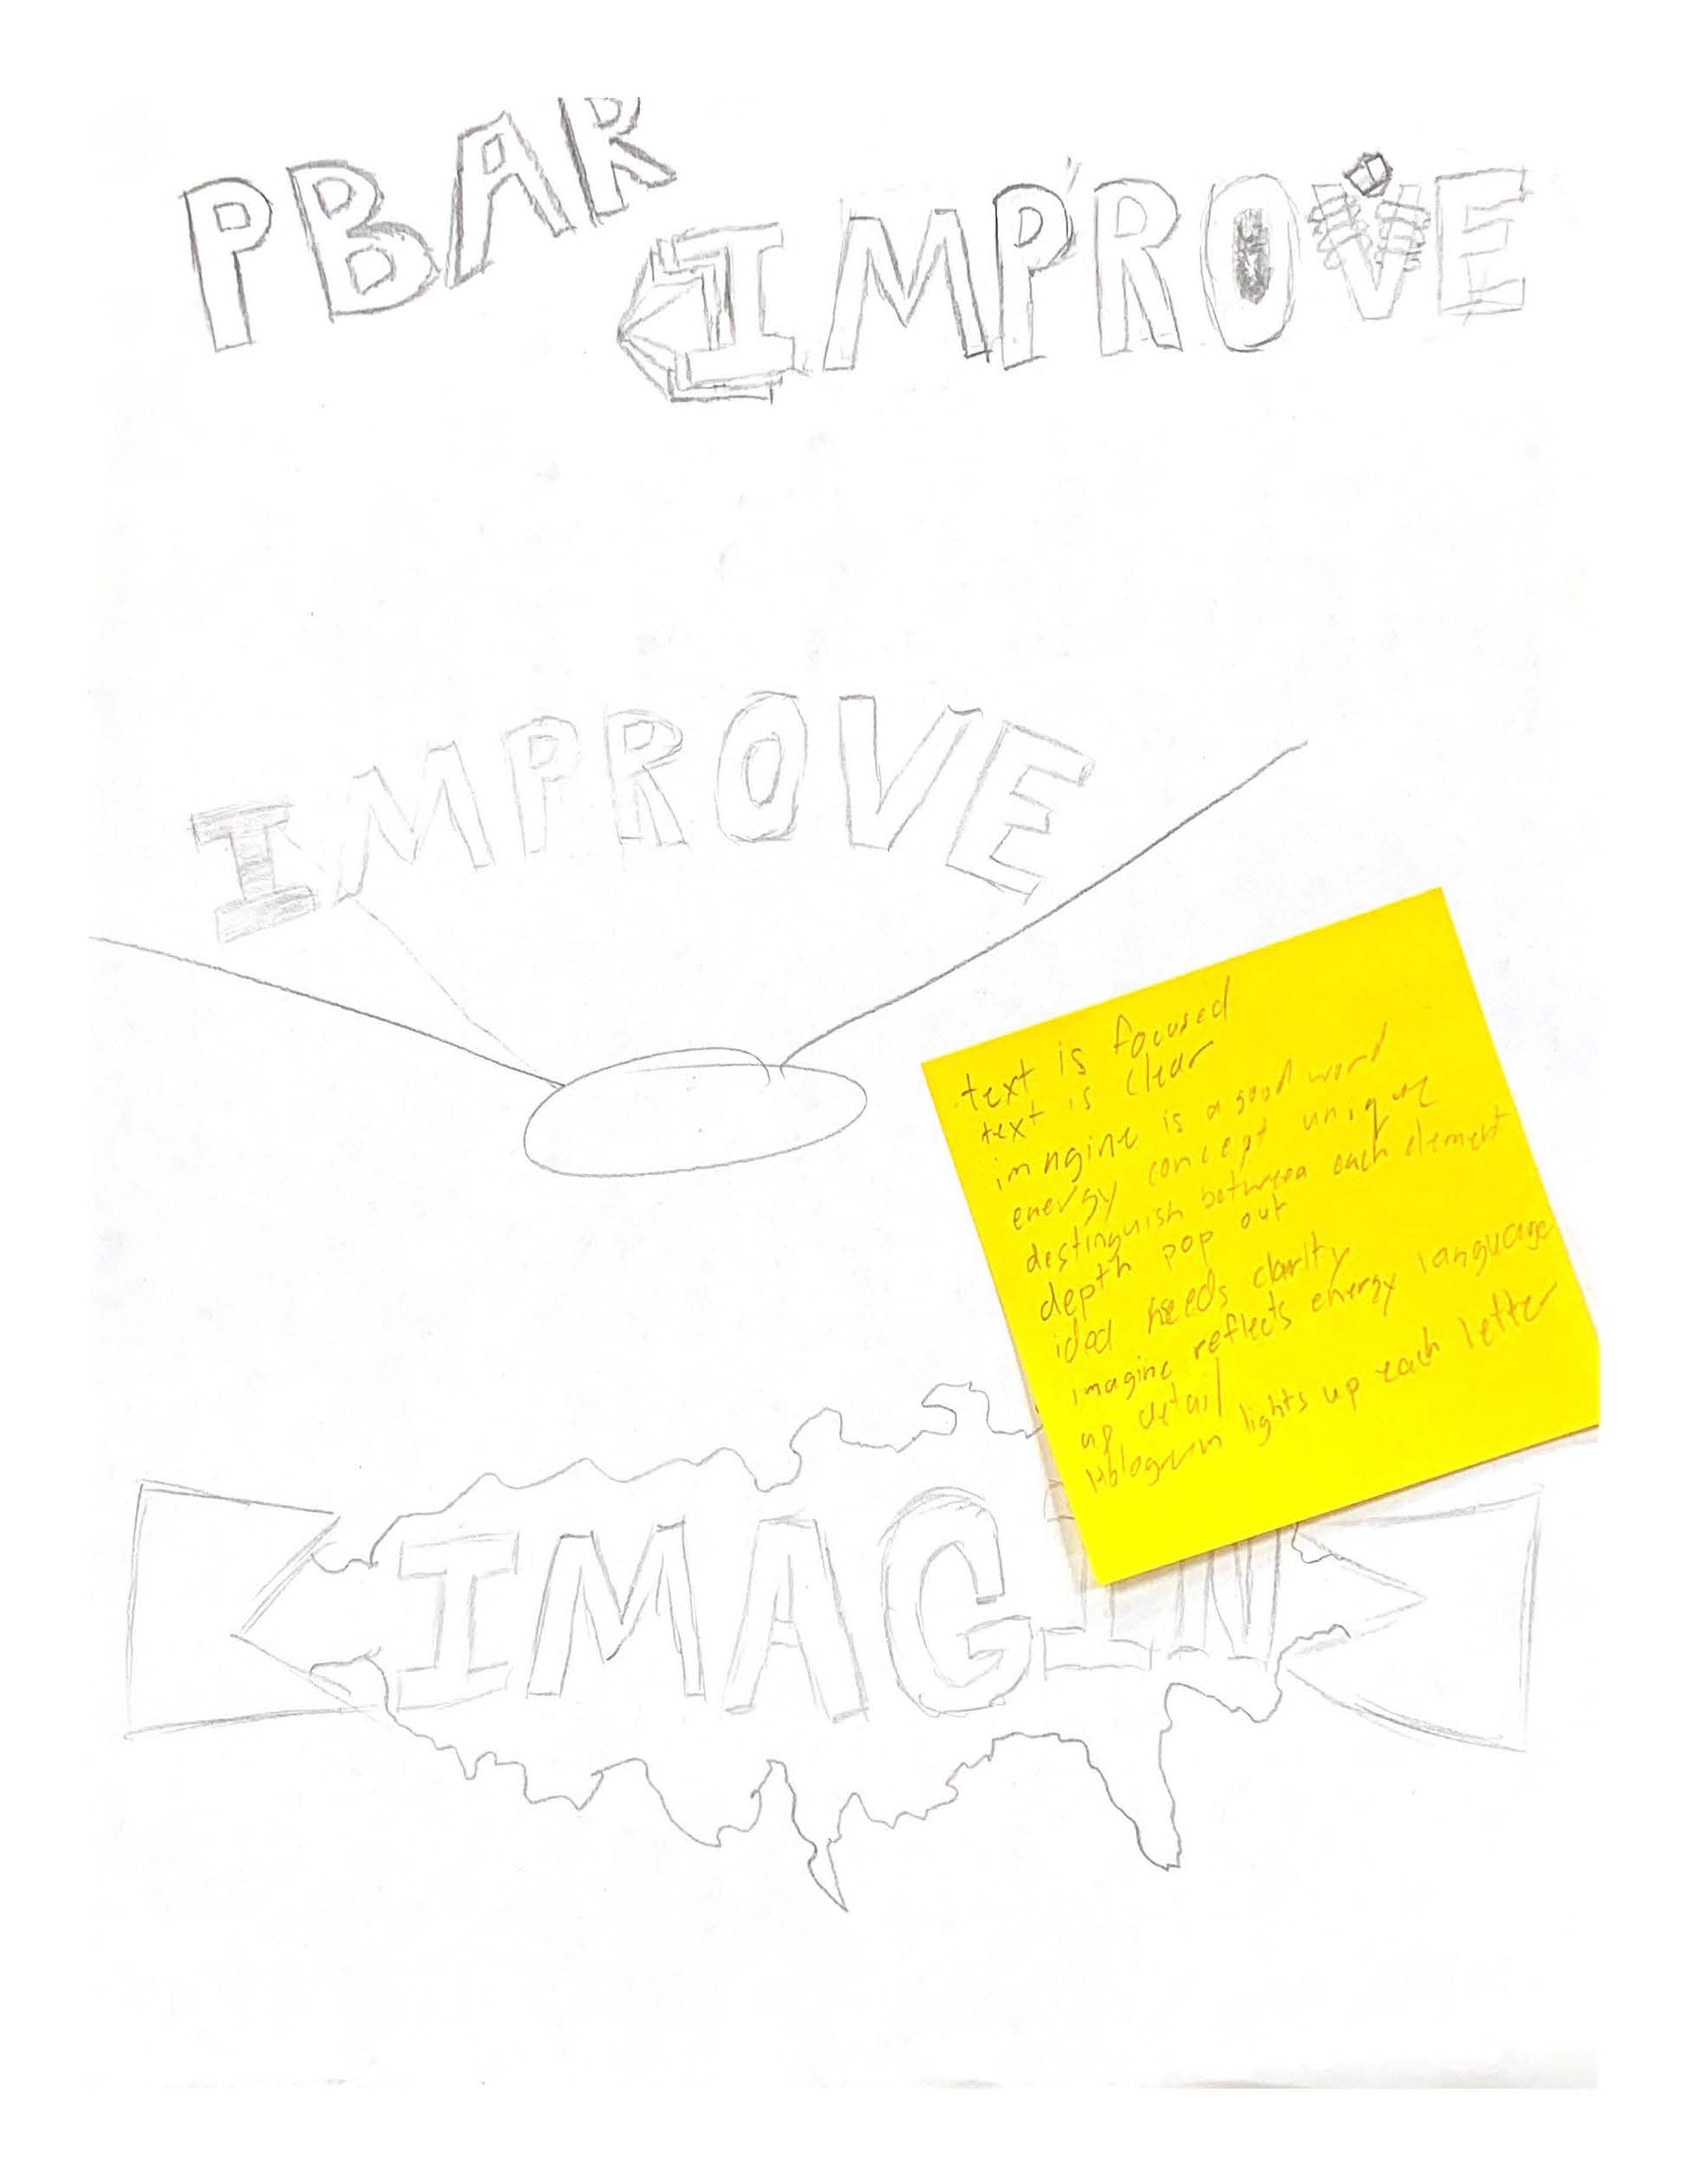 PBAR
IMPROVE
IMPROVE
text is focused
text is clear
imagine is a good word
energy concept unique
destinguish between each element
depth pop out
idea needs clarity
imagine reflects energy language
up detail
Hologram lights up each letter
IMAGIN